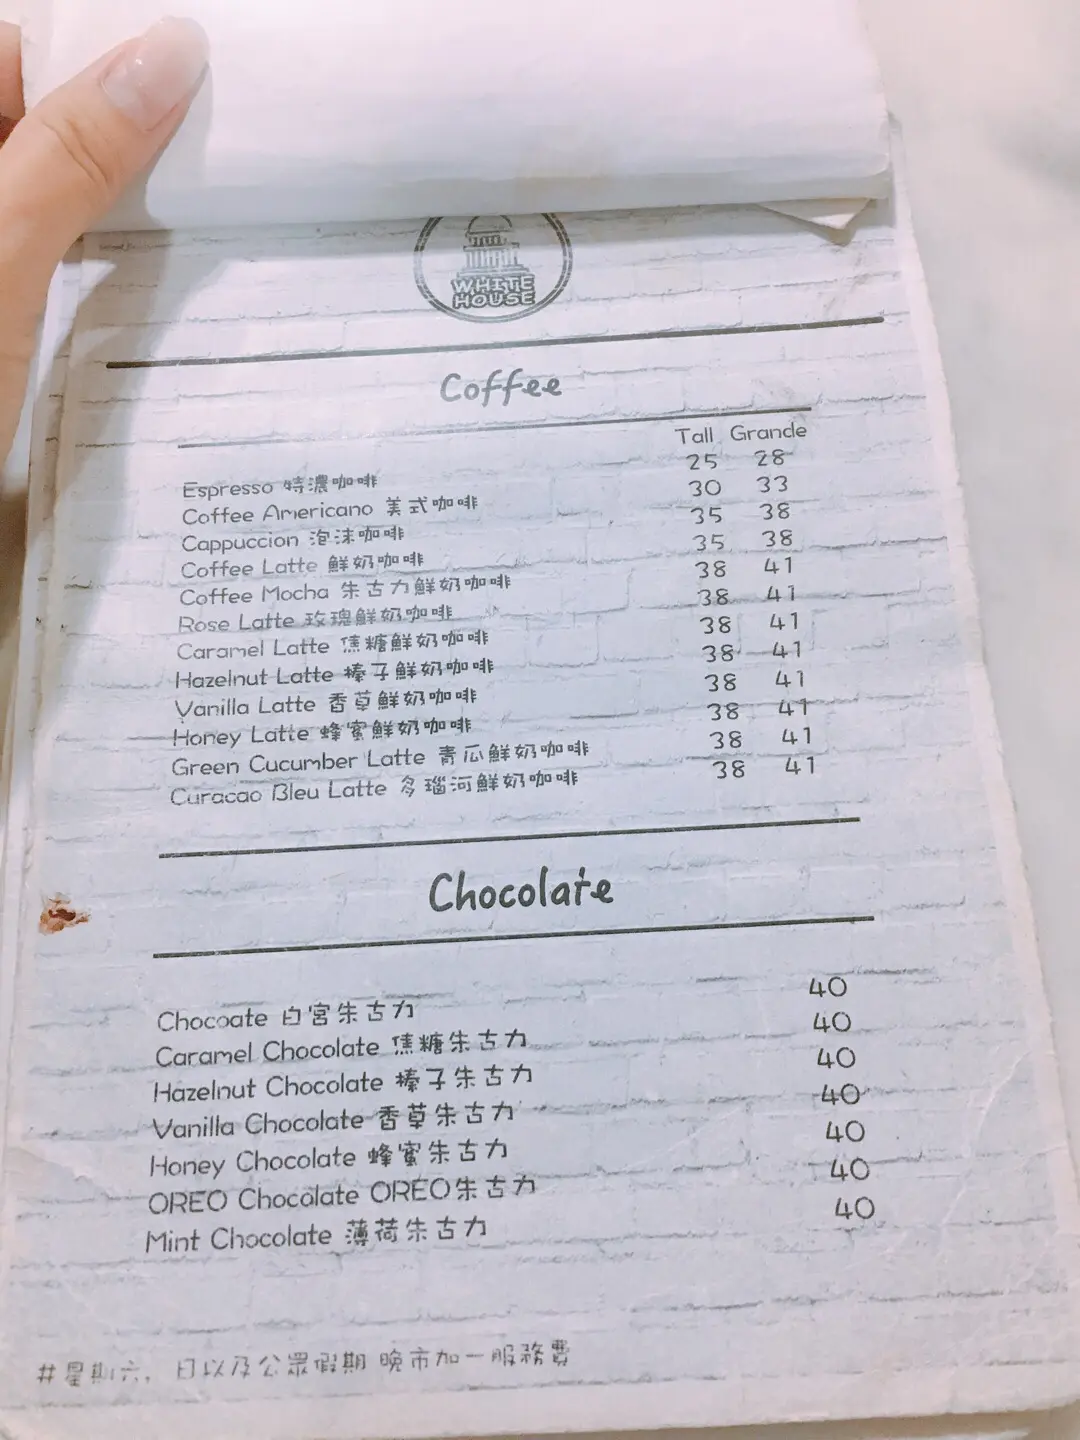 WHITE
HOUSE
Coffee
Tall Grande
Espresso 特濃咖啡 25 28
Coffee Americano 美式咖啡 30 33
Cappuccion 泡沫咖啡 35 38
Coffee Latte 鮮奶咖啡 35 38
Coffee Mocha 朱古力鮮奶咖啡 38 41
Rose Latte 玫瑰鮮奶咖啡 38 41
Caramel Latte 焦糖鮮奶咖啡 38 41
Hazelnut Latte 榛子鮮奶咖啡 38 41
Vanilla Latte 香草鮮奶咖啡 38 41
Honey Latte 蜂蜜鮮奶咖啡 38 41
Green Cucumber Latte 青瓜鮮奶咖啡 38 41
Curacao Bleu Latte 多瑙河鮮奶咖啡 38 41
Chocolate
Chocoate 白宮朱古力 40
Caramel Chocolate 焦糖朱古力 40
Hazelnut Chocolate 榛子朱古力 40
Vanilla Chocolate 香草朱古力 40
Honey Chocolate 蜂蜜朱古力 40
OREO Chocolate OREO朱古力 40
Mint Chocolate 薄荷朱古力 40
#星期六，日以及公眾假期 晚市加一服務費